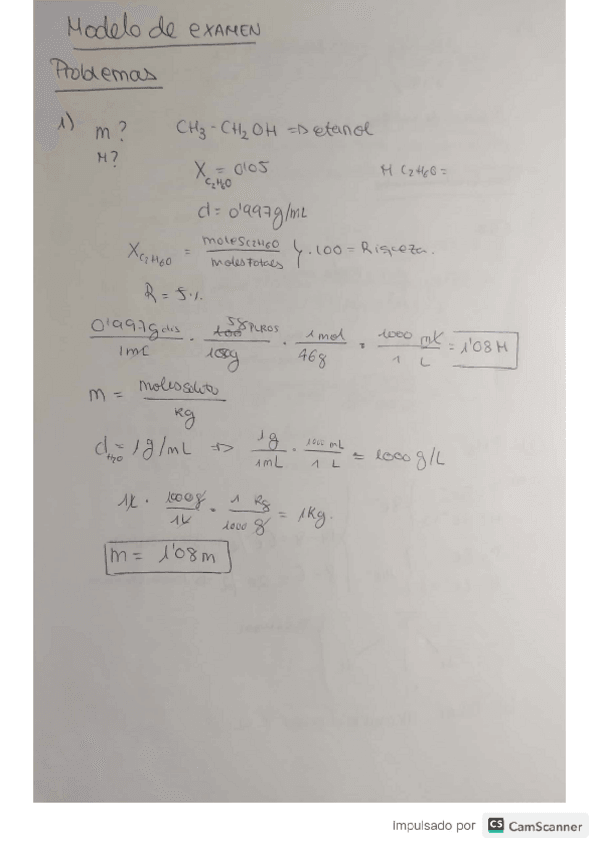 Modelo de EXAMEN
Problemas
1) m? CH3-CH2OH => etanol
M?
X C2H6O = 0'05 M C2H6O =
d = 0'997g/mL
X C2H6O = moles C2H6O / moles Totales } · 100 = Riqueza.
R = 5%
0'997g dis / 1mL · 5g PUROS / 100g · 1 mol / 46g · 1000 mL / 1 L = 1'08 M
m = moles soluto / kg
d H2O = 1g/mL => 1g / 1mL · 1000 mL / 1 L = 1000 g/L
1L · 1000g / 1L · 1 Kg / 1000 g = 1Kg.
m = 1'08m
Impulsado por CS CamScanner